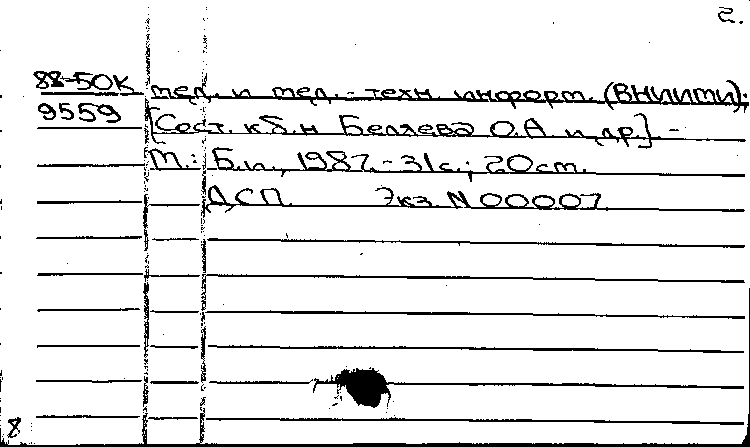 2.
88-50К мед. и мед.-техн. информ. (ВНИИМИ);
9559 [Сост. к.б.н Беляева О.А. и др.] -
М.: Б.и., 1987.- 31с.; 20см.
ДСП Экз. N 00007
8